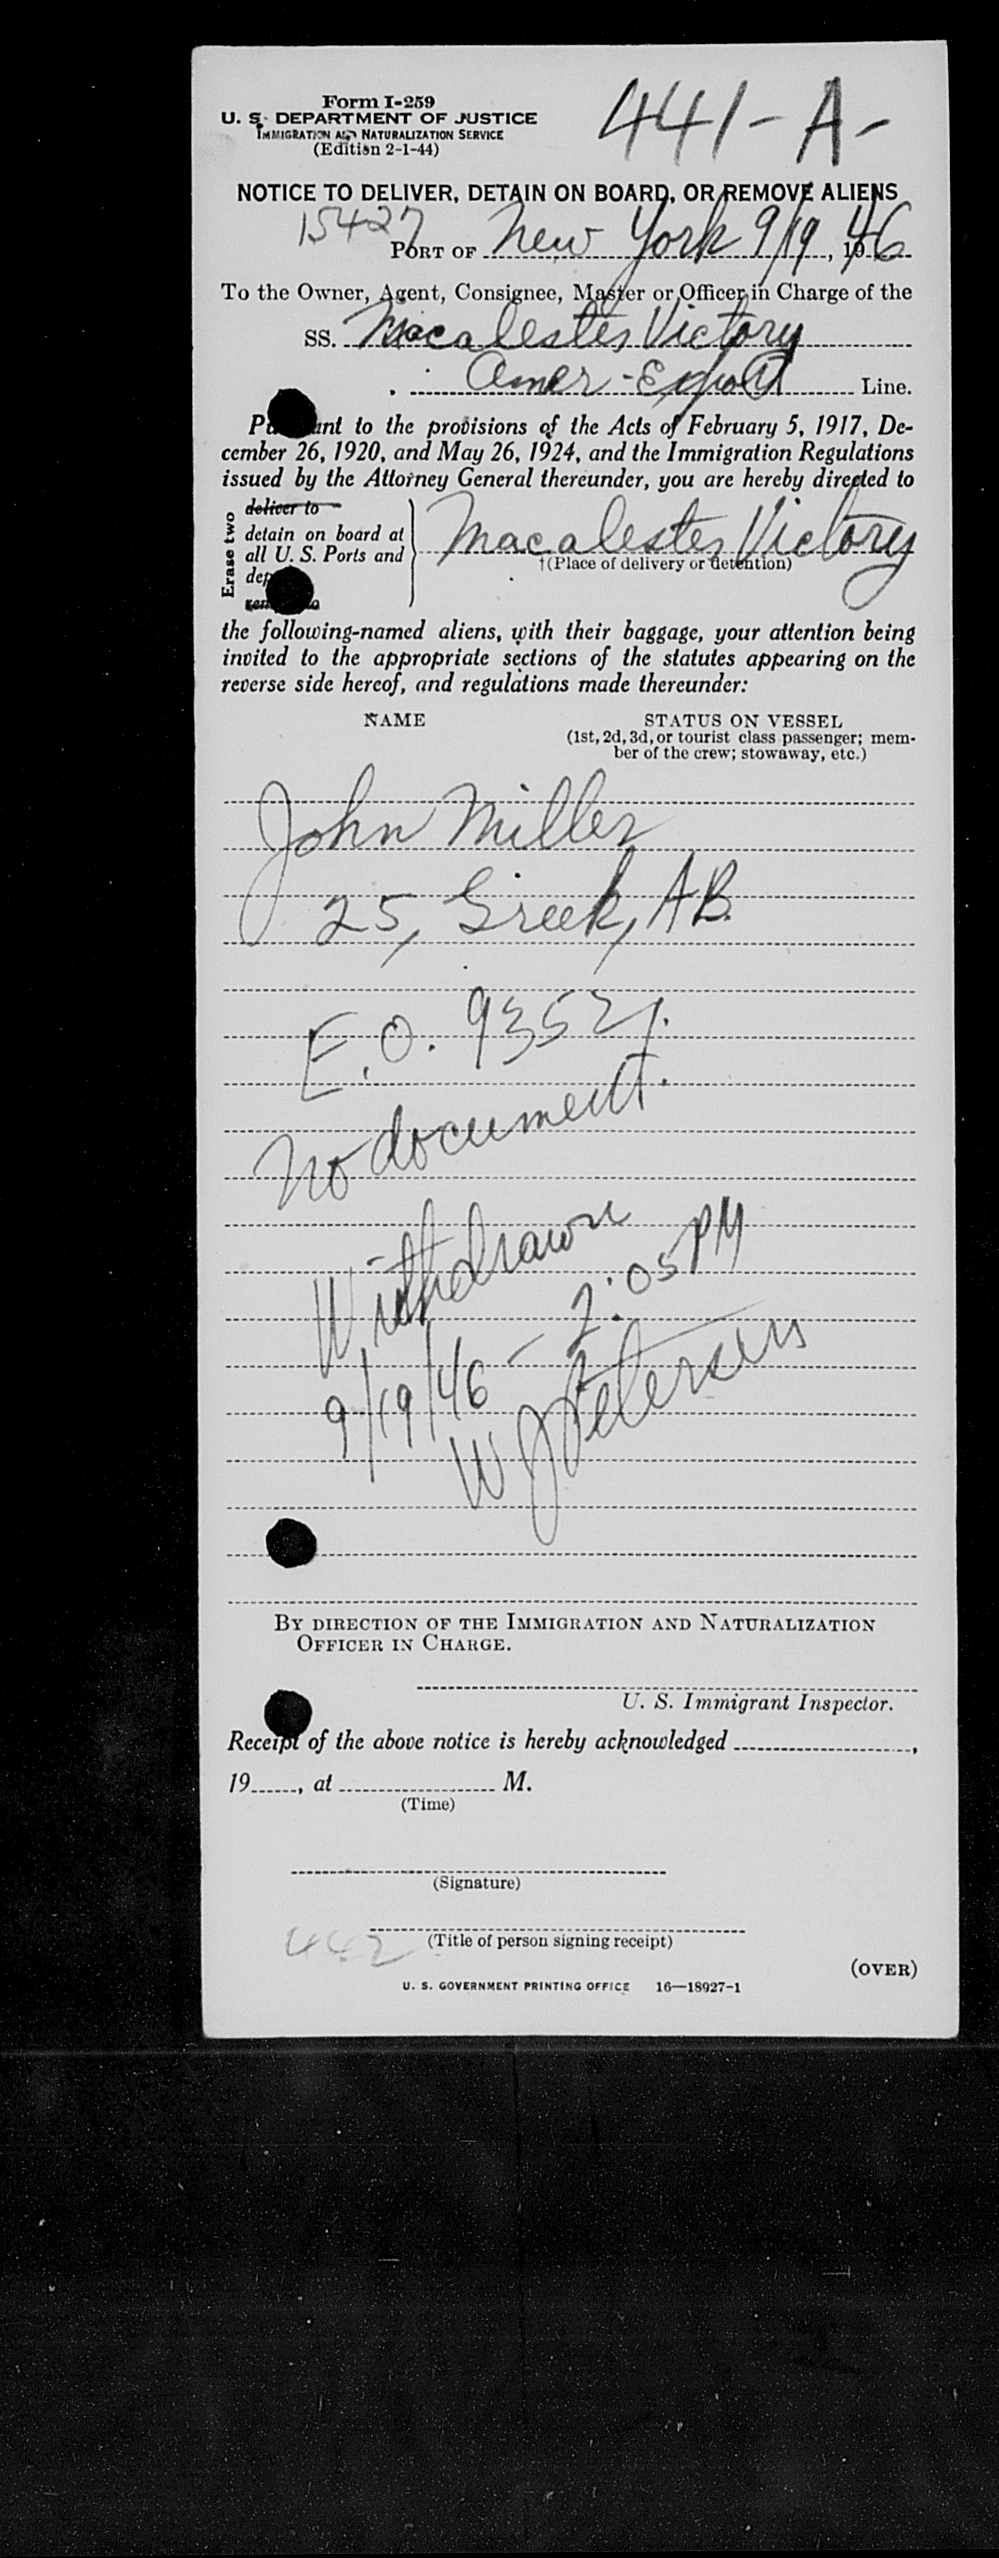 Form I-259
441-A-
U. S. DEPARTMENT OF JUSTICE
IMMIGRATION AND NATURALIZATION SERVICE
(Edition 2-1-44)
NOTICE TO DELIVER, DETAIN ON BOARD, OR REMOVE ALIENS
15427
PORT OF New York 9/19, 1946
To the Owner, Agent, Consignee, Master or Officer in Charge of the
SS. Macalester Victory
Amer-Export Line.
Pursuant to the provisions of the Acts of February 5, 1917, De-
cember 26, 1920, and May 26, 1924, and the Immigration Regulations
issued by the Attorney General thereunder, you are hereby directed to
Erase two
deliver to
detain on board at
all U. S. Ports and
Macalester Victory
†(Place of delivery or detention)
the following-named aliens, with their baggage, your attention being
invited to the appropriate sections of the statutes appearing on the
reverse side hereof, and regulations made thereunder:
NAME
STATUS ON VESSEL
(1st, 2d, 3d, or tourist class passenger; mem-
ber of the crew; stowaway, etc.)
John Miller
25, Greek, AB.
E.O. 9352
No document.
Withdrawn
9/19/46 - 2:05 PM
W J Petersen
BY DIRECTION OF THE IMMIGRATION AND NATURALIZATION
OFFICER IN CHARGE.
U. S. Immigrant Inspector.
Receipt of the above notice is hereby acknowledged ,
19 , at M.
(Time)
(Signature)
442
(Title of person signing receipt)
(OVER)
U. S. GOVERNMENT PRINTING OFFICE 16—18927-1